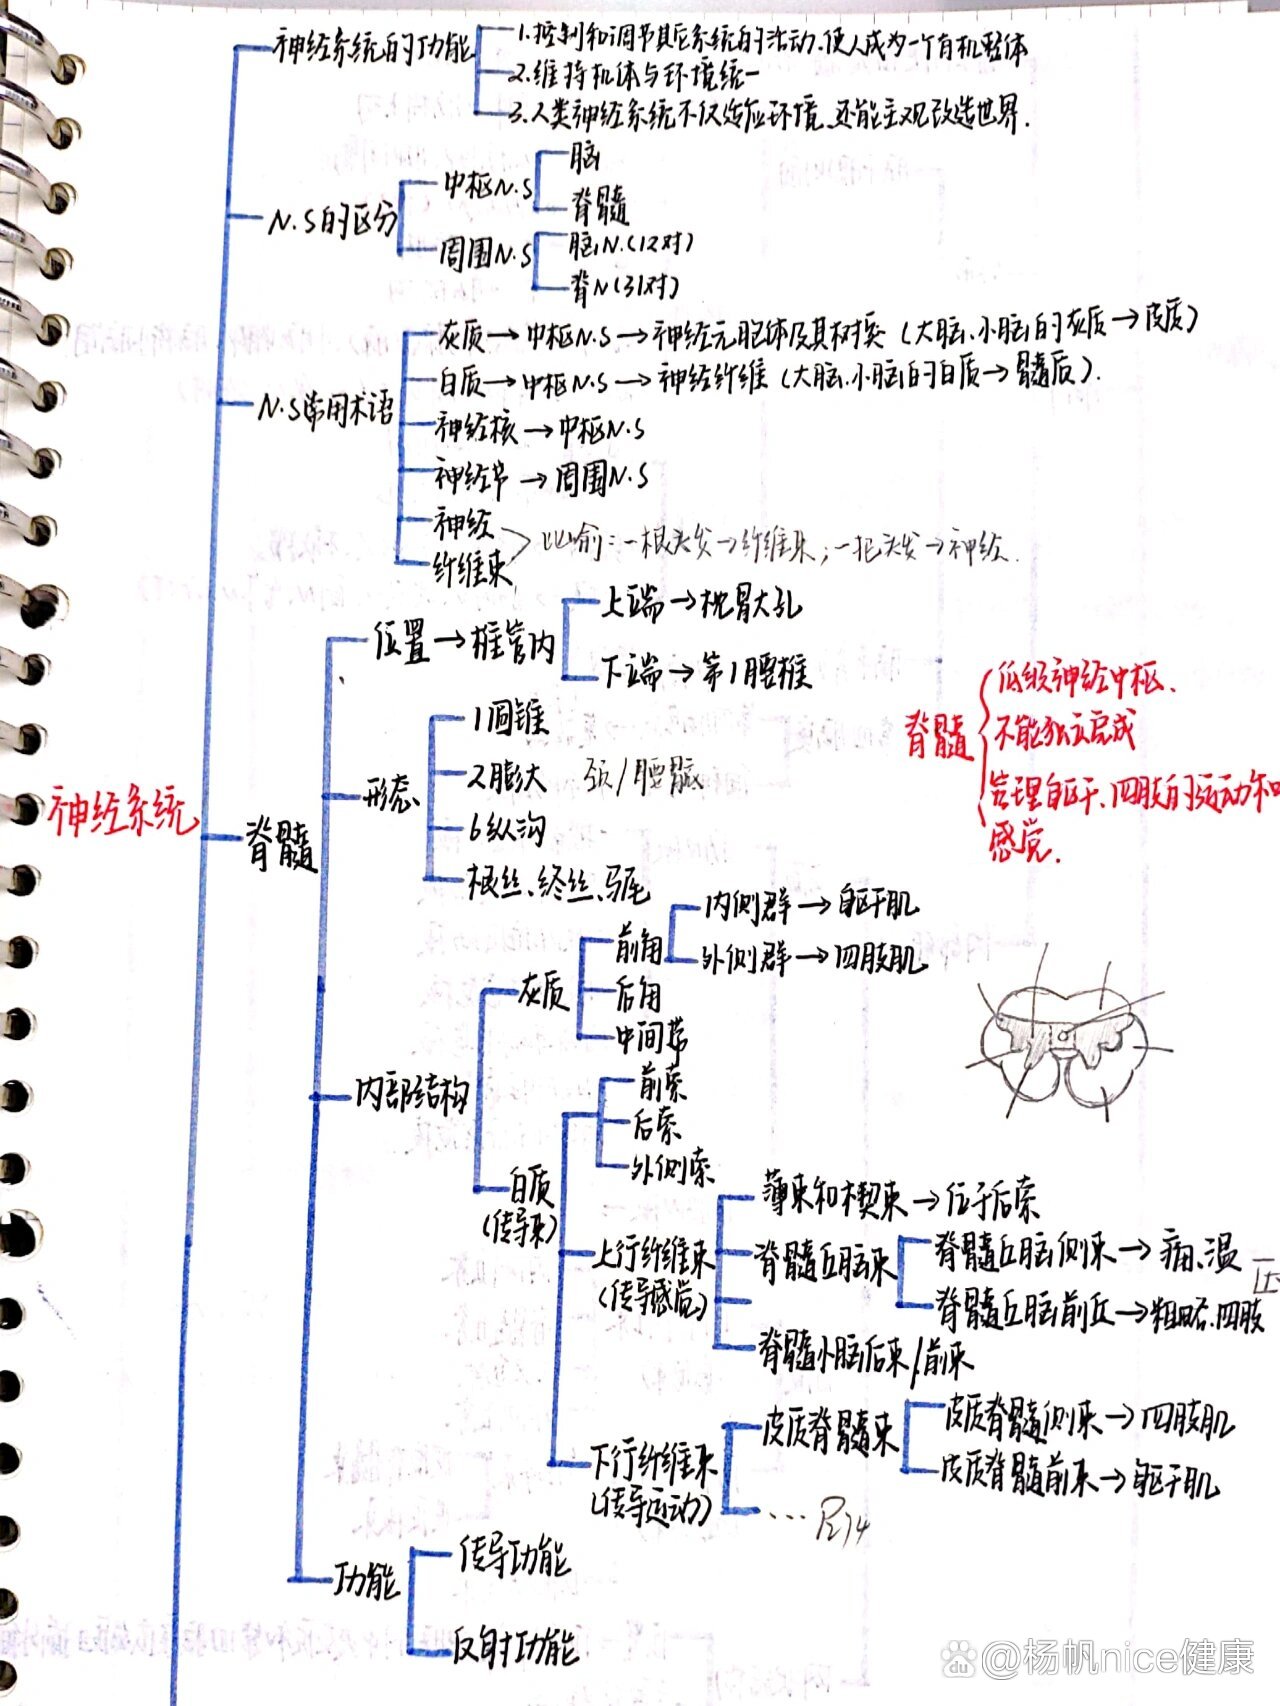 神经系统的功能
1.控制和调节其它系统的活动,使人成为一个有机整体
2.维持机体与环境统一
3.人类神经系统不仅适应环境,还能主观改造世界.
N.S的区分
中枢N.S
脑
脊髓
周围N.S
脑N.(12对)
脊N(31对)
N.S常用术语
灰质→中枢N.S→神经元胞体及其树突(大脑、小脑的灰质→皮质)
白质→中枢N.S→神经纤维(大脑、小脑的白质→髓质).
神经核→中枢N.S
神经节→周围N.S
神经
纤维束
比喻:一根头发→纤维束;一把头发→神经.
神经系统
脊髓
位置→椎管内
上端→枕骨大孔
下端→第1腰椎
形态
1圆锥
2膨大 颈/腰骶
6纵沟
根丝、终丝、马尾
脊髓
低级神经中枢.
不能独立完成
管理躯干、四肢的运动和
感觉.
内部结构
灰质
前角
内侧群→躯干肌
外侧群→四肢肌
后角
中间带
白质
(传导束)
前索
后索
外侧索
上行纤维束
(传导感觉)
薄束和楔束→位于后索
脊髓丘脑束
脊髓丘脑侧束→痛、温
脊髓丘脑前丘→粗略.四肢
压
脊髓小脑后束/前束
下行纤维束
(传导运动)
皮质脊髓束
皮质脊髓侧束→四肢肌
皮质脊髓前束→躯干肌
...
功能
传导功能
反射功能
Bai du @杨帆nice健康